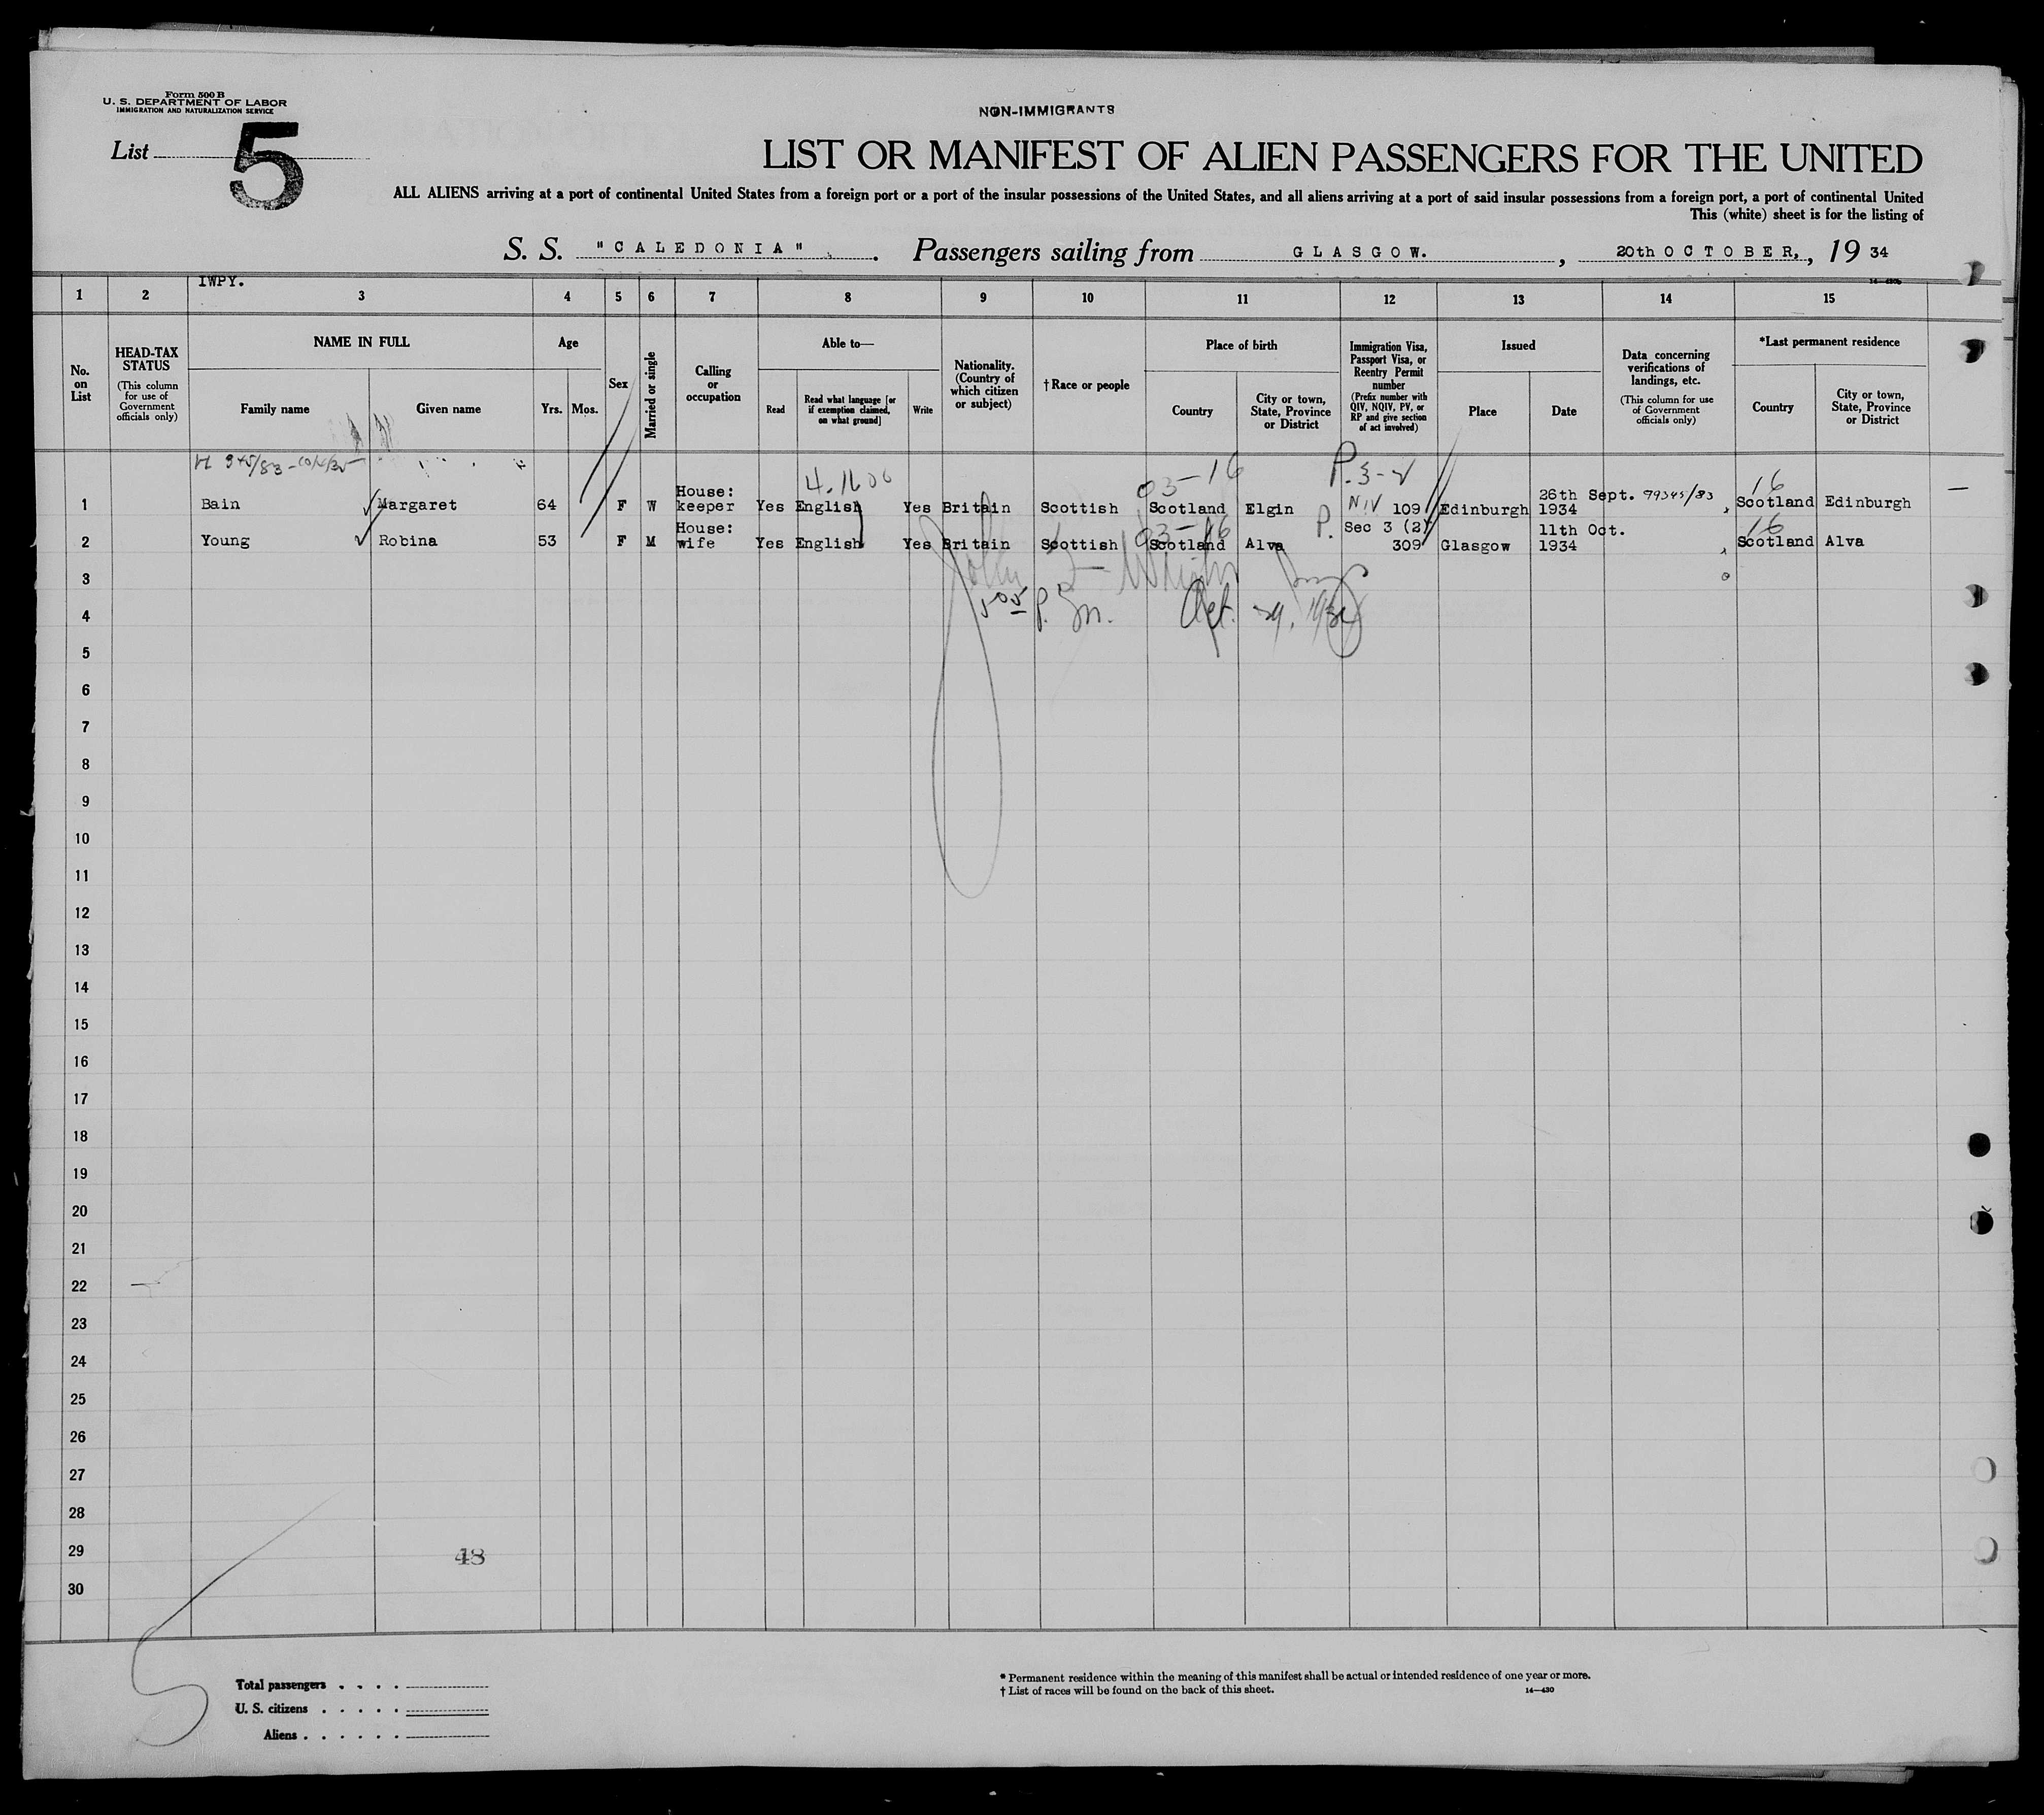 Form 500 B
U. S. DEPARTMENT OF LABOR
IMMIGRATION AND NATURALIZATION SERVICE
NON-IMMIGRANTS
List 5
LIST OR MANIFEST OF ALIEN PASSENGERS FOR THE UNITED
ALL ALIENS arriving at a port of continental United States from a foreign port or a port of the insular possessions of the United States, and all aliens arriving at a port of said insular possessions from a foreign port, a port of continental United
This (white) sheet is for the listing of
S. S. "CALEDONIA". Passengers sailing from GLASGOW., 20th OCTOBER,, 19 34
IWPY.
1 2 3 4 5 6 7 8 9 10 11 12 13 14 15
No. on List
HEAD-TAX STATUS
(This column for use of Government officials only)
NAME IN FULL
Family name Given name
Age
Yrs. Mos.
Sex
Married or single
Calling or occupation
Able to—
Read
Read what language [or if exemption claimed, on what ground]
Write
Nationality. (Country of which citizen or subject)
† Race or people
Place of birth
Country
City or town, State, Province or District
Immigration Visa, Passport Visa, or Reentry Permit number
(Prefix number with QIV, NQIV, PV, or RP and give section of act involved)
Issued
Place Date
Data concerning verifications of landings, etc.
(This column for use of Government officials only)
*Last permanent residence
Country
City or town, State, Province or District
03-16 P. 3-2 16
1 Bain Margaret 64 F W House: keeper Yes English Yes Britain Scottish Scotland Elgin NIV 109 Edinburgh 26th Sept. 1934 99345/83 Scotland Edinburgh
03-16 P. 16
2 Young Robina 53 F M House: wife Yes English Yes Britain Scottish Scotland Alva Sec 3 (2) 309 Glasgow 11th Oct. 1934 Scotland Alva
3
4 P. M. Oct. 29, 1934
5
6
7
8
9
10
11
12
13
14
15
16
17
18
19
20
21
22
23
24
25
26
27
28
29 48
30
Total passengers
U. S. citizens
Aliens
* Permanent residence within the meaning of this manifest shall be actual or intended residence of one year or more.
† List of races will be found on the back of this sheet. 14—430